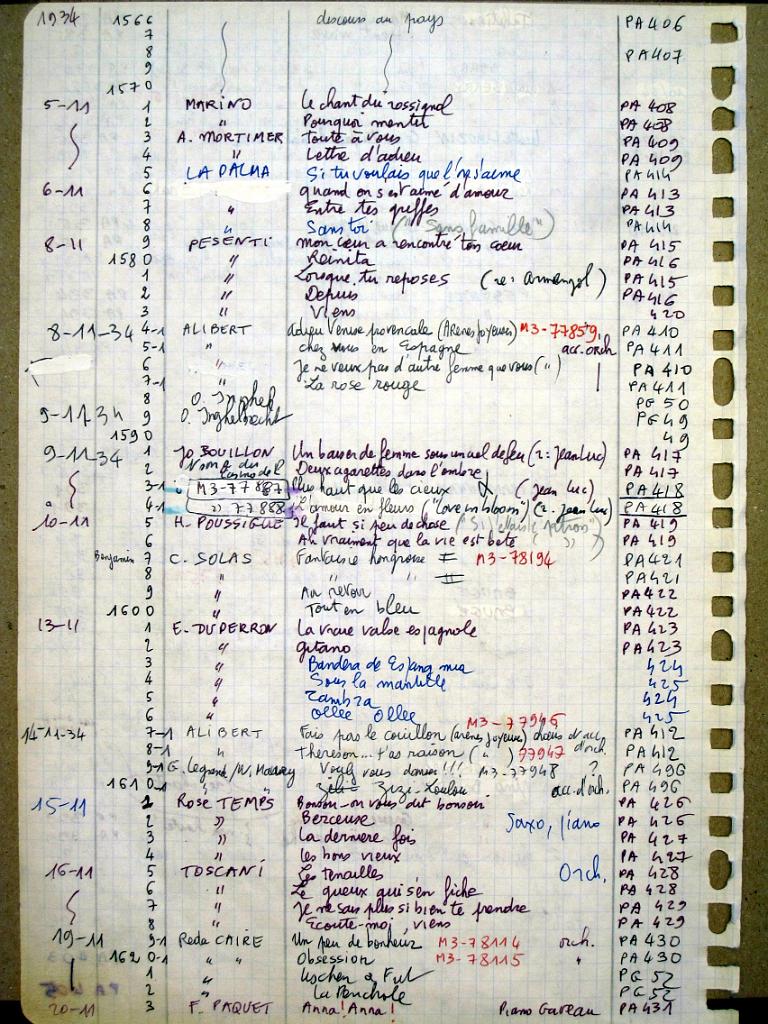 1934 1566 discours au pays PA406
7
8 PA407
9
1570
5-11 1 MARINO Le chant du rossignol PA 408
2 " Pourquoi mentir PA 408
3 A. MORTIMER toute à vous PA 409
4 " Lettre d'adieu PA 409
5 LA PALMA Si tu voulais que l'on s'aime PA414
6-11 6 quand on s'est aimé d'amour PA 413
7 " Entre tes griffes PA 413
8 " Sans toi ("Sans famille") PA414
8-11 9 PESENTI mon cœur a rencontré ton cœur PA 415
1580 " Reinita PA 416
1 " Lorsque tu reposes (re: Armengol) PA415
2 " Depuis PA416
3 " Viens 420
8-11-34 4-1 ALIBERT adieu Venise provencale (Arènes joyeuses) M3-77859 PA 410
5-1 " chez vous en Espagne acc. orch PA 411
6 " Je ne veux pas d'autre femme que vous (") PA 410
7-1 " La rose rouge PA411
8 O. PG 50
9-11-34 9 O. Inghelbrecht PG 49
1590 49
9-11-34 1 JO BOUILLON Un baiser de femme sous un ciel de feu (r: Jean Luc) PA 417
2 Deux cigarettes dans l'ombre PA 417
3-1 M3-77887 Plus haut que les cieux (Jean Luc) PA418
4-1 " 77888 L'amour en fleurs ("love in bloom") (r. Jean Luc) PA 418
10-11 5 H. POUSSIGUE Il faut si peu de chose PA 419
6 " Ah vraiment que la vie est bete PA 419
Benjamin 7 C. SOLAS Fantaisie hongroise I M3-78194 PA421
8 " " " II PA421
9 " Au revoir PA422
1600 " Tout en bleu PA422
13-11 1 E. DUPERRON La vraie valse espagnole PA 423
2 " gitano PA 423
3 " Bandera de Espang mia 424
4 " Sous la mantille 425
5 " Zambra 424
6 " Ollée Ollée 425
14-11-34 7-1 ALIBERT Fais pas le couillon (arènes joyeuses) M3-77946 chœurs d'acc d'orch. PA 412
8-1 " Thérèson... t'as raison (") 77947 PA 412
9-1 G. Legrand/W. Voulez vous danser!!! M3-77948 ? PA 496
1610-1 Zizi Toulou acc. d'orch. PA 496
15-11 1 Rose TEMPS Bonsoir on vous dit bonsoir PA 426
2 " Berceuse Saxo, piano PA 426
3 " La dernière fois PA 427
4 " Les bons vieux PA 427
16-11 5 TOSCANI Les Tenailles Orch. PA 428
6 " Le gueux qui s'en fiche PA 428
7 " Je ne sais plus si bien te prendre PA 429
8 " Ecoute-moi, viens PA 429
19-11 9-1 Reda CAIRE Un peu de bonheur M3-78114 orch. PA 430
1620-1 " " Obsession M3-78115 " PA 430
1 " PG 52
2 " PG 52
20-11 3 F. PAQUET Anna! Anna! Piano Gaveau PA431